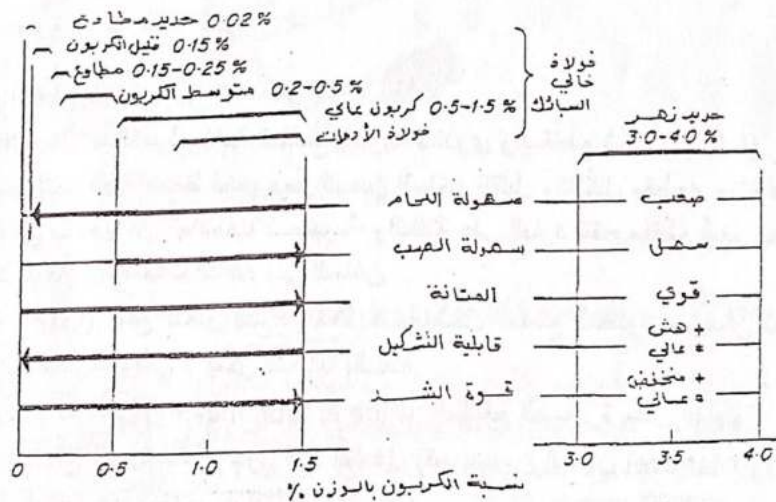 0.02 % حديد مطاوع
0.15 % قليل الكربون
0.15-0.25 % مطاوع
0.2-0.5 % متوسط الكربون
0.5-1.5 % كربون عالي
فولاذ الأدوات
فولاذ
خالي
السبائك
حديد زهر
3.0-4.0 %
سهولة اللحام صعب
سهولة الصب سهل
المتانة قوي
قابلية التشكيل + هش * عالي
قوة الشد + منخفض * عالي
0 0.5 1.0 1.5 3.0 3.5 4.0
نسبة الكربون بالوزن %